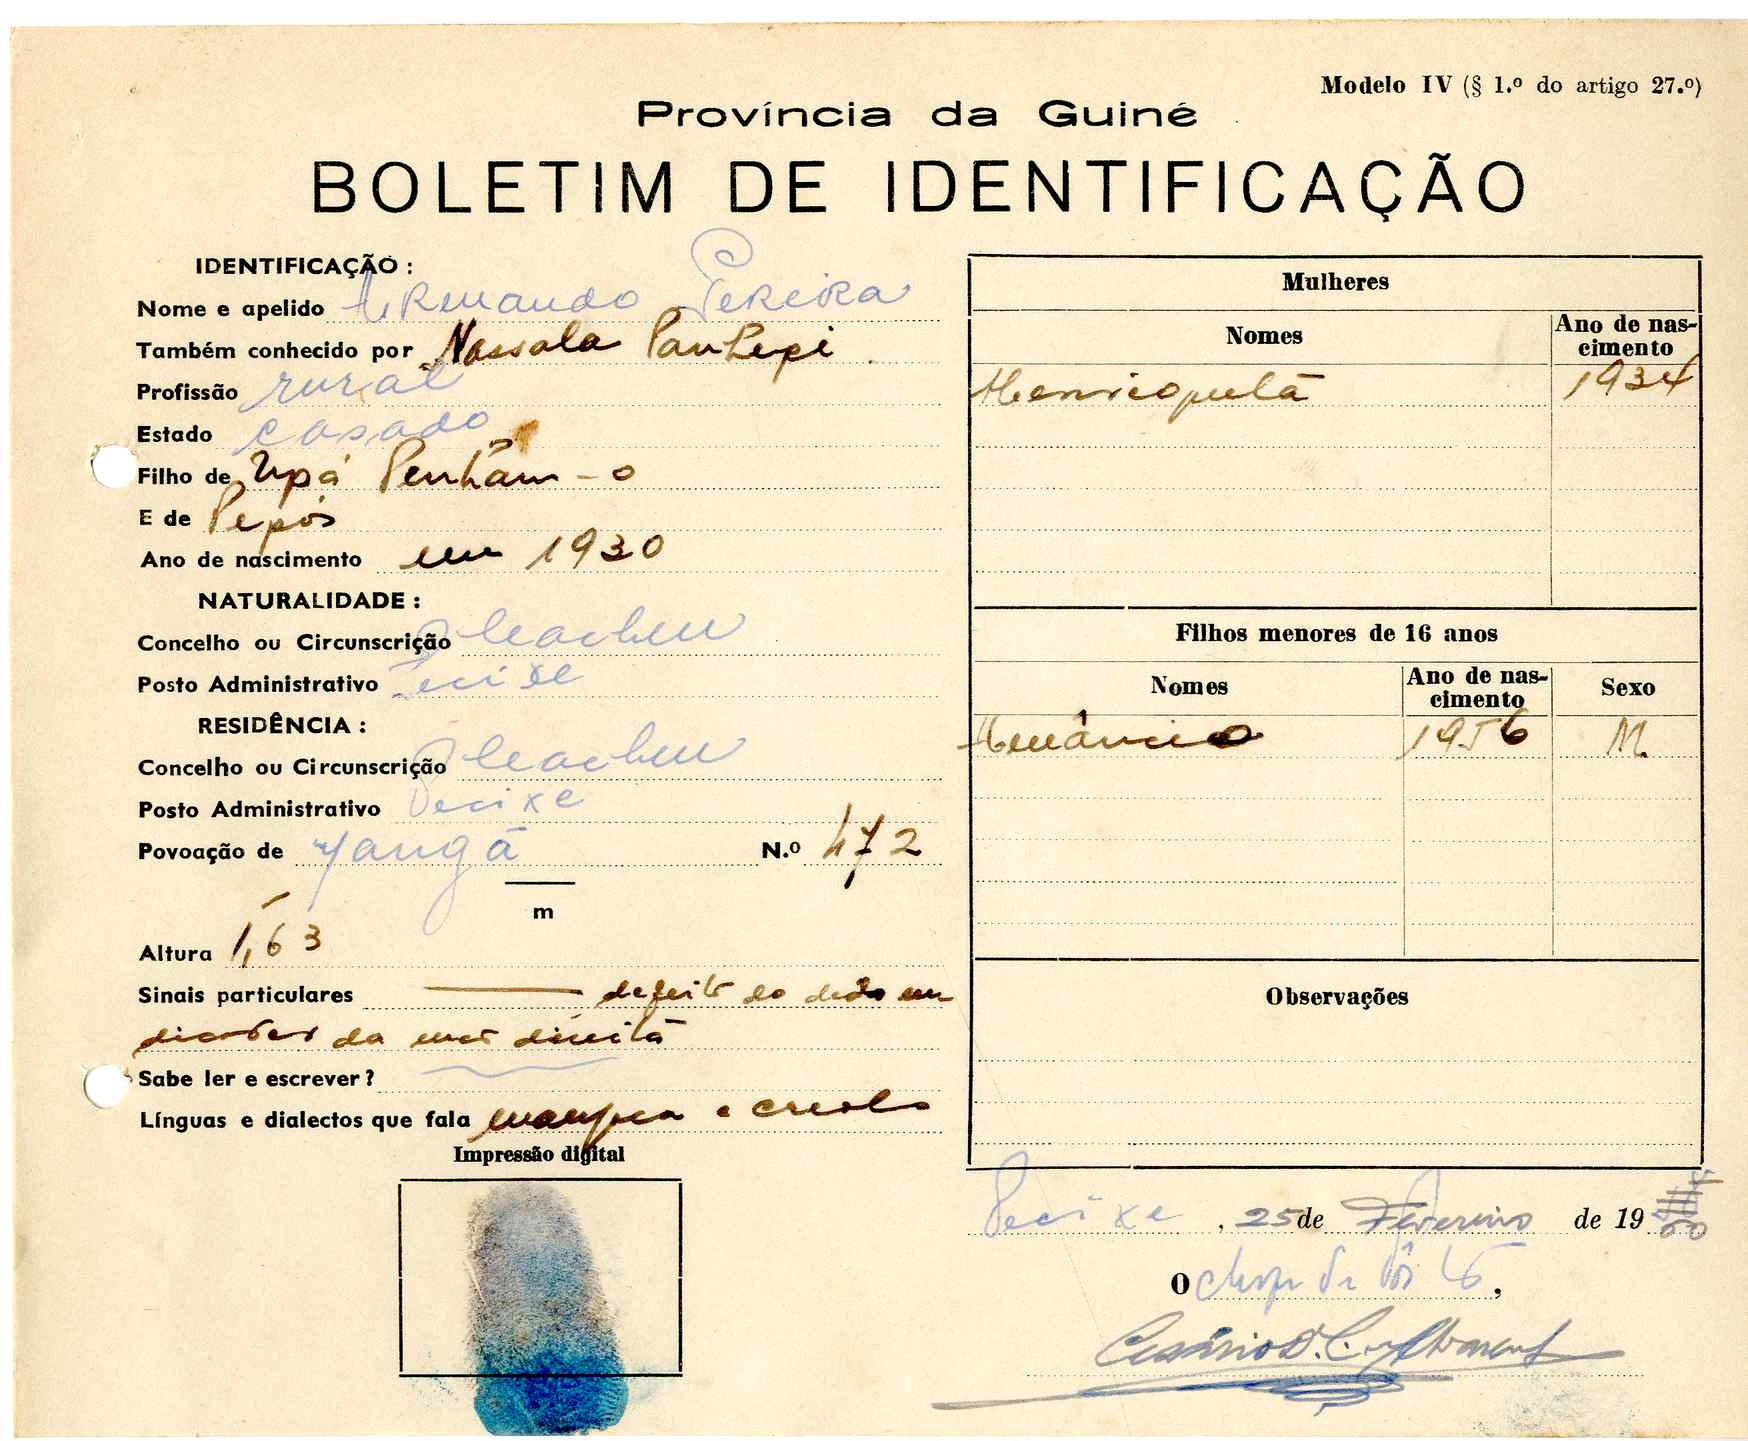 Modelo IV (§ 1.º do artigo 27.º)
Província da Guiné
BOLETIM DE IDENTIFICAÇÃO
IDENTIFICAÇÃO :
Nome e apelido Armando Pereira
Também conhecido por Nassala
Profissão rural
Estado casado
Filho de Upá
E de Pepós
Ano de nascimento em 1930
NATURALIDADE :
Concelho ou Circunscrição Cacheu
Posto Administrativo Pecixe
RESIDÊNCIA :
Concelho ou Circunscrição Cacheu
Posto Administrativo Pecixe
Povoação de N.º 472
m
Altura 1,63
Sinais particulares defeito do dedo in-
dicador da mão direita
Sabe ler e escrever?
Línguas e dialectos que fala e creolo
Impressão digital
Mulheres
Nomes Ano de nas-
cimento
1934
Filhos menores de 16 anos
Nomes Ano de nas-
cimento Sexo
1956 M
Observações
Pecixe, 25 de Fevereiro de 1960
O chefe de Pôsto,